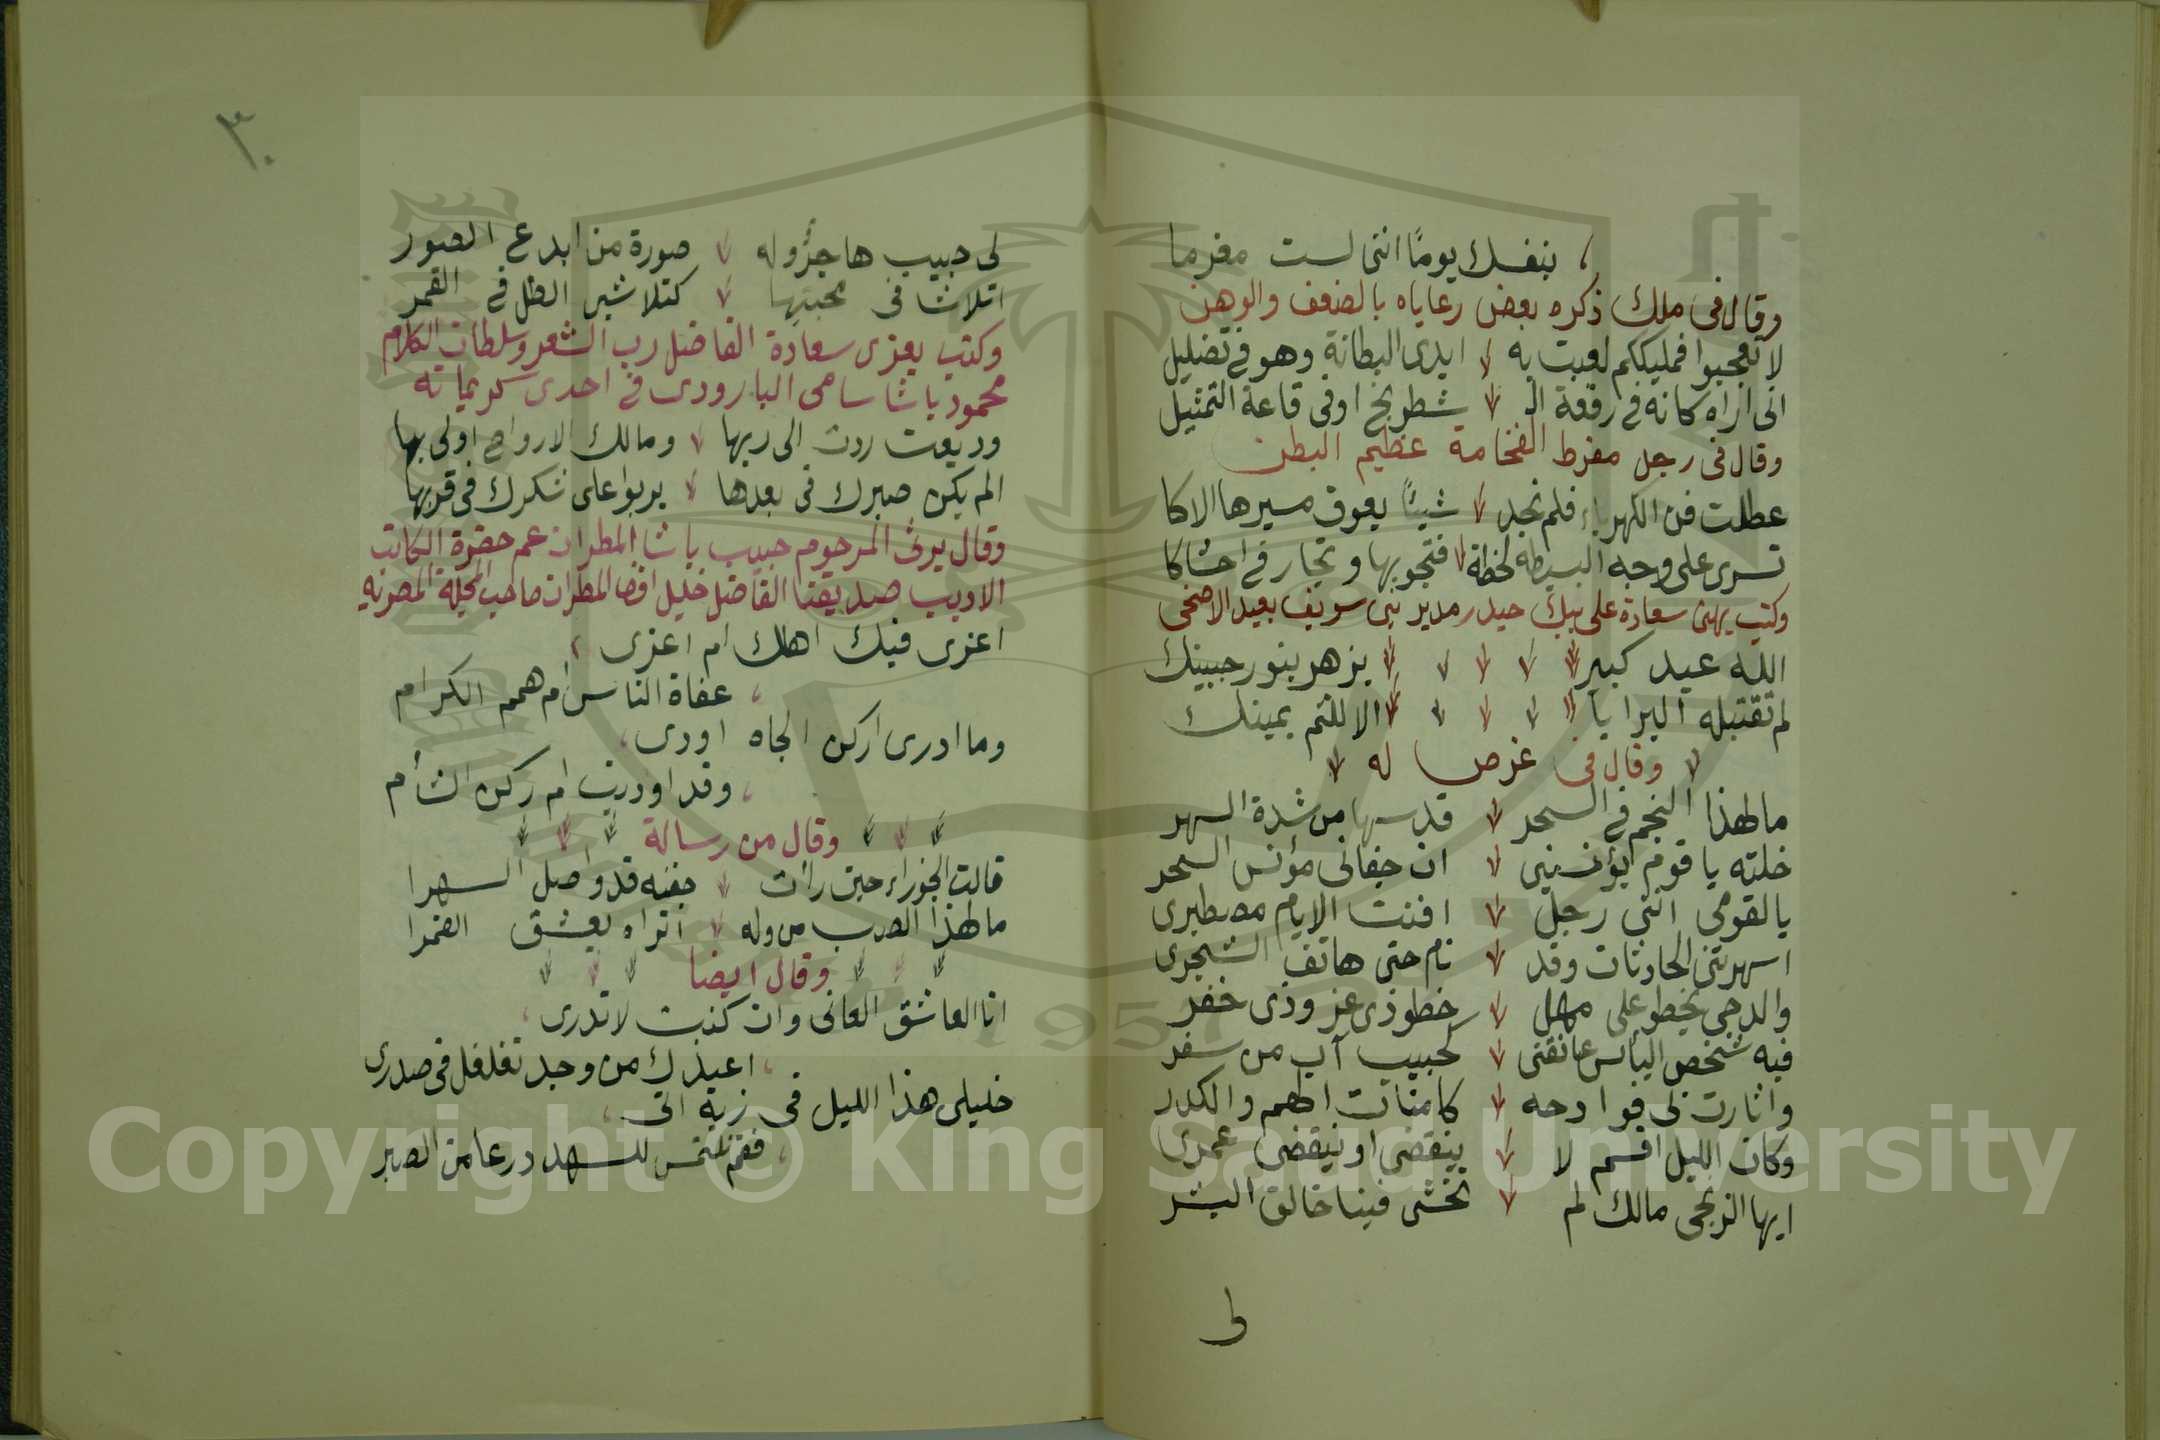 بنفسك يومًا اننى لست مغرما
وقال فى ملك ذكره بعض رعاياه بالضعف والوهن
لا تعجبوا فمليككم لعبت به ايدى البطانة وهو فى تضليل
انى اراه كانه فى رقعة الـ شطرنج او فى قاعة التمثيل
وقال فى رجل مفرط الفخامة عظيم البطن
عطلت فن الكهرباء فلم نجد شيئًا يعوق مسيرها الاكا
تسرى على وجه البسيطة لحظة فتجوبها وتحار فى احشاكا
وكتب يهنى سعادة على بيك حيدر مدير بنى سويف بعيد الاضحى
لله عيد كبير يزهر بنور جبينك
لم تقتبله البرايا الا للثم يمينك
وقال فى غرض له
ما لهذا النجم فى السحر قد سها من شدة السهر
خلته يا قوم يؤنسنى ان جفانى مؤنس السحر
يا لقومى اننى رجل افنت الايام مصطبرى
اسهرتنى الحادثات وقد نام حتى هاتف الشجرى
والدجى يخطو على مهل خطو ذى عز وذى خفر
فيه شخص الياس عانقنى كحبيب آب من سفر
واثارت بى فوادحه كامنات الهم والكدر
وكان الليل اقسم لا ينقضى او ينقضى عمرى
ايها الزنجى مالك لم تخشى فينا خالق البشر
ط
٣٠
لى حبيب هاجر وله صورة من ابدع الصور
اتلاشا فى محبتها كتلاشى الظل فى القمر
وكتب يعزى سعادة الفاضل رب الشعر وسلطان الكلام
محمود باشا سامى البارودى فى احدى كريماته
وديعت ردت الى ربها ومالك الارواح اولى بها
الم يكن صبرك فى بعدها يربوا على شكرك فى قربها
وقال يرثى المرحوم حبيب باشا المطران عم حضرة الكاتب
الاديب صديقنا الفاضل خليل المطران صاحب المجلة المصرية
اعزى فيك اهلك ام اعزى
عفاة الناس ام همم الكرام
وما ادرى اركن الجاه اودى
وقد اوديت ام ركن الشأم
وقال من رسالة
قالت الجوزاء حين رأت جفنه قد واصل السهرا
ما لهذا الصب من وله اتراه يعشق القمرا
وقال ايضا
انا العاشق العانى وان كنت لا تدرى
اعيذك من وجد تغلغل فى صدرى
خليلى هذا الليل فى زيه اتى
فقم نلتمس للسهد درعا من الصبر
Copyright © King Saud University
1957